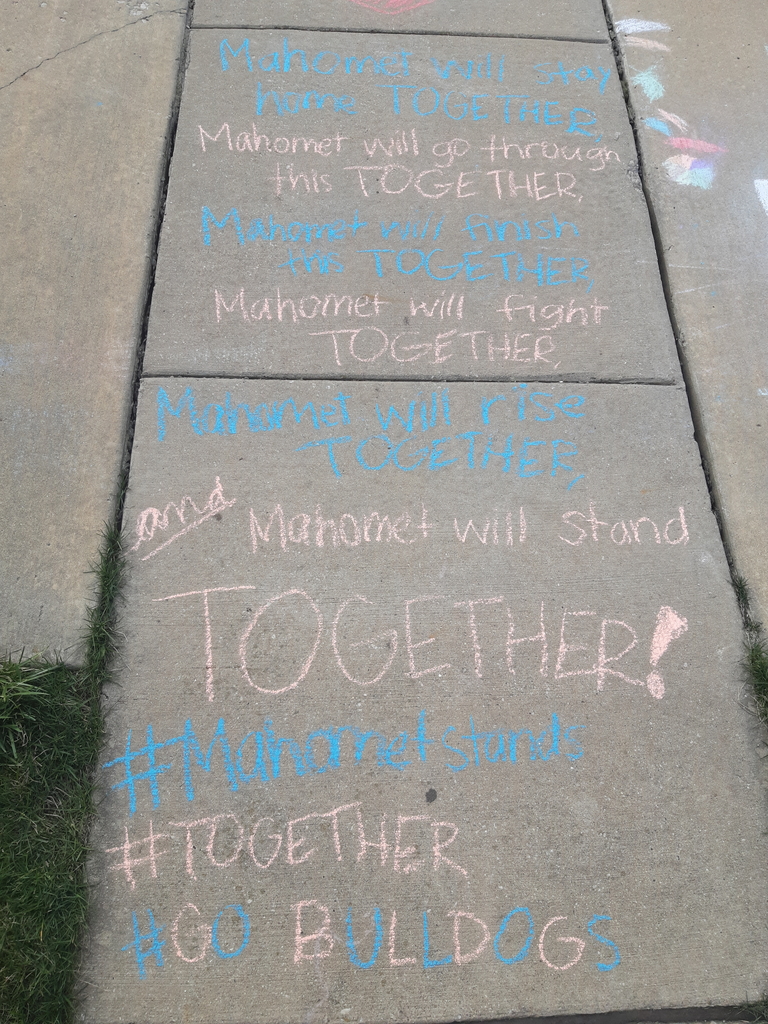 Mahomet will stay
home TOGETHER,
Mahomet will go through
this TOGETHER,
Mahomet will finish
this TOGETHER,
Mahomet will fight
TOGETHER,
Mahomet will rise
TOGETHER,
and Mahomet will stand
TOGETHER!
#Mahometstands
#TOGETHER
#GO BULLDOGS